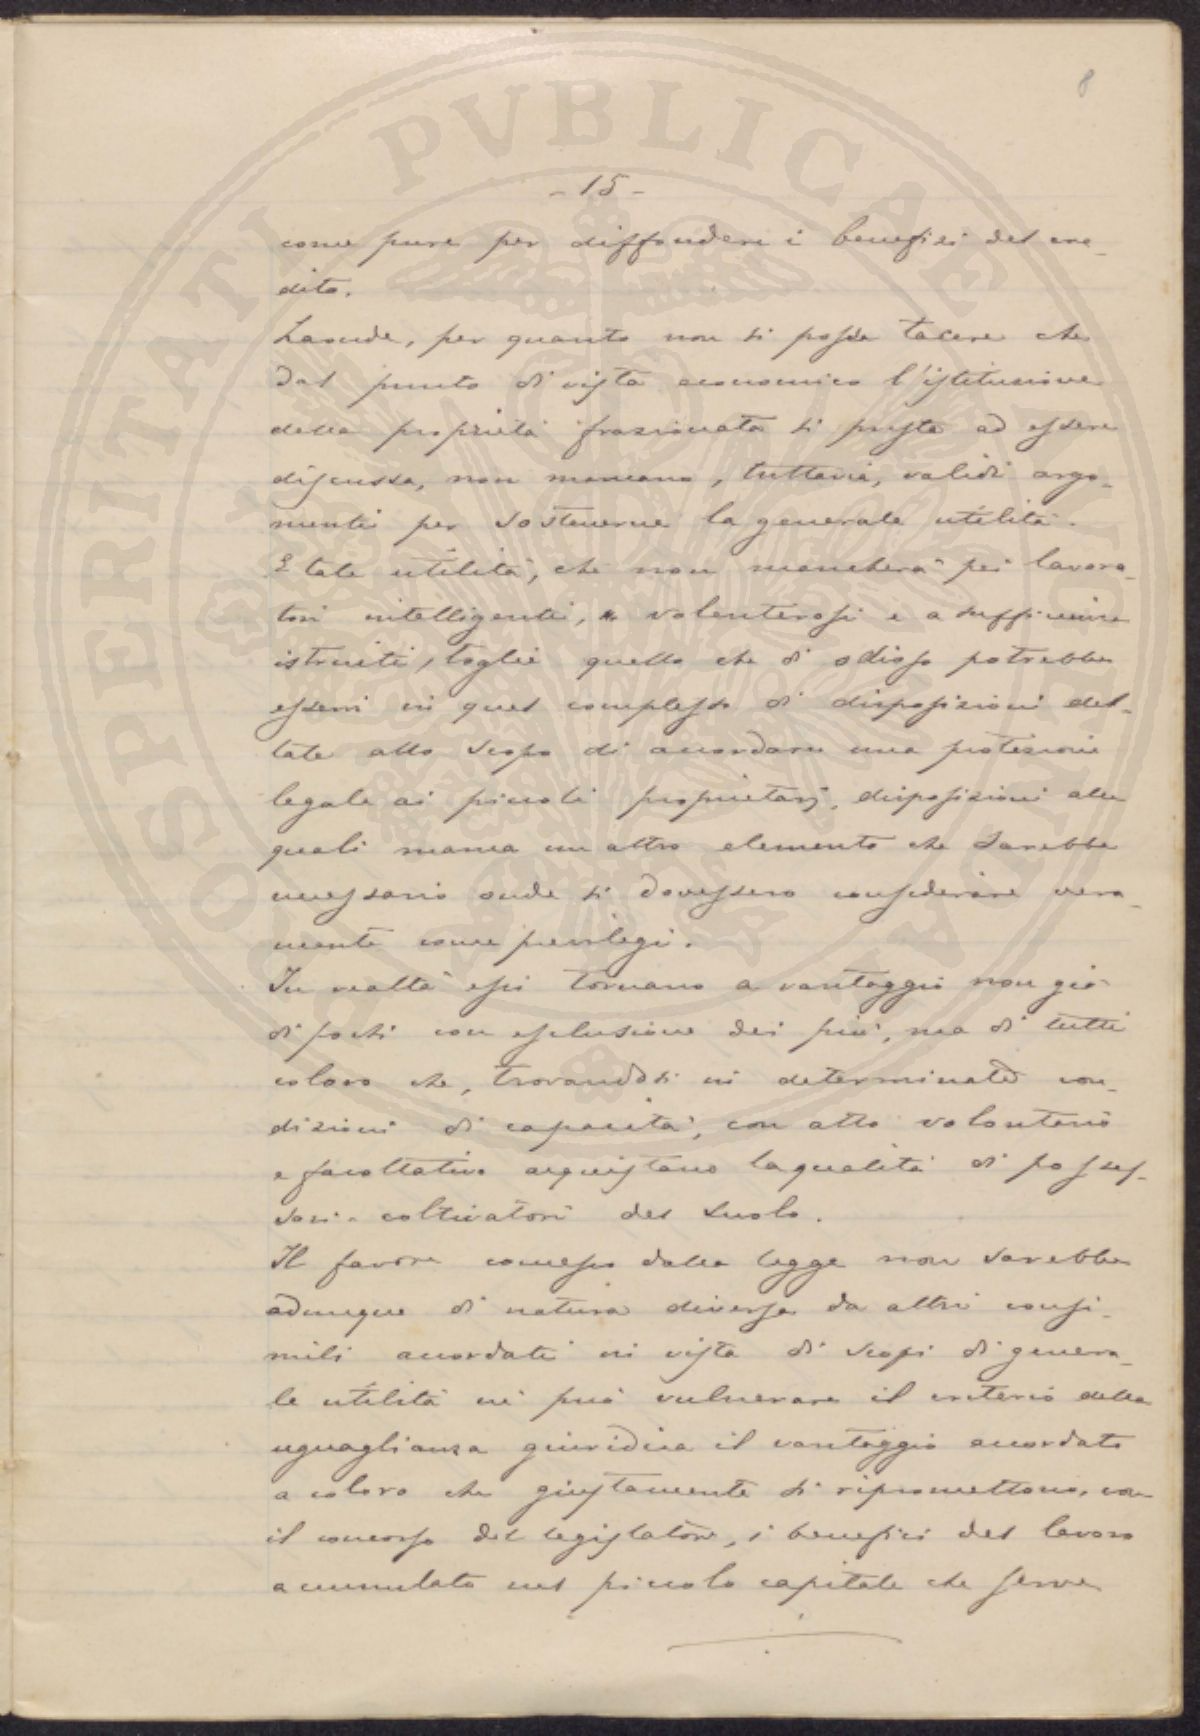 8
- 15 -
come pure per diffondere i benefizi del cre-
dito.
Laonde, per quanto non si possa tacere che
dal punto di vista economico l'istituzione
della proprietà frazionata si presta ad essere
discussa, non mancano, tuttavia, validi argo-
menti per sostenerne la generale utilità.
E tale utilità, che non mancherà pei lavora-
tori intelligenti, volenterosi e a sufficienza
istruiti, toglie quello che di odioso potrebbe
esservi in quel complesso di disposizioni det-
tate allo scopo di accordare una protezione
legale ai piccoli proprietarj, disposizioni alle
quali manca un altro elemento che sarebbe
necessario onde si dovessero considerare vera-
mente come privilegi.
In realtà essi tornano a vantaggio non già
di pochi con esclusione dei più, ma di tutti
coloro che, trovandosi in determinate con-
dizioni di capacità, con atto volontario
e facoltativo acquistano la qualità di posses-
sori-coltivatori del suolo.
Il favore concesso dalla legge non sarebbe
adunque di natura diversa da altri consi-
mili accordati in vista di scopi di genera-
le utilità nè può vulnerare il criterio della
uguaglianza giuridica il vantaggio accordato
a coloro che giustamente si ripromettono, con
il concorso del legislatore, i benefici del lavoro
accumulato nel piccolo capitale che serve
PROSPERITATI PVBLICAE